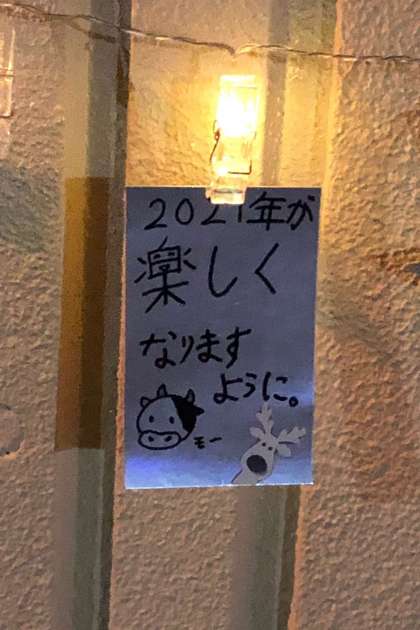 2021年が
楽しく
なります
ように。
モー